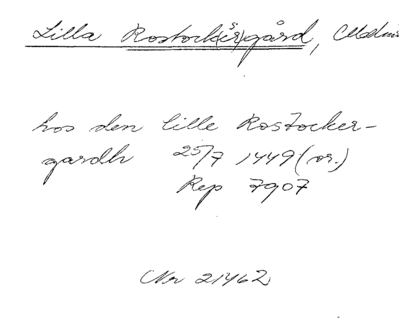 Lilla Rostock(er)gård,
hos den lille Rostocker-
gardh 25/7 1449 (or.)
Rep 7907
Nr 21462